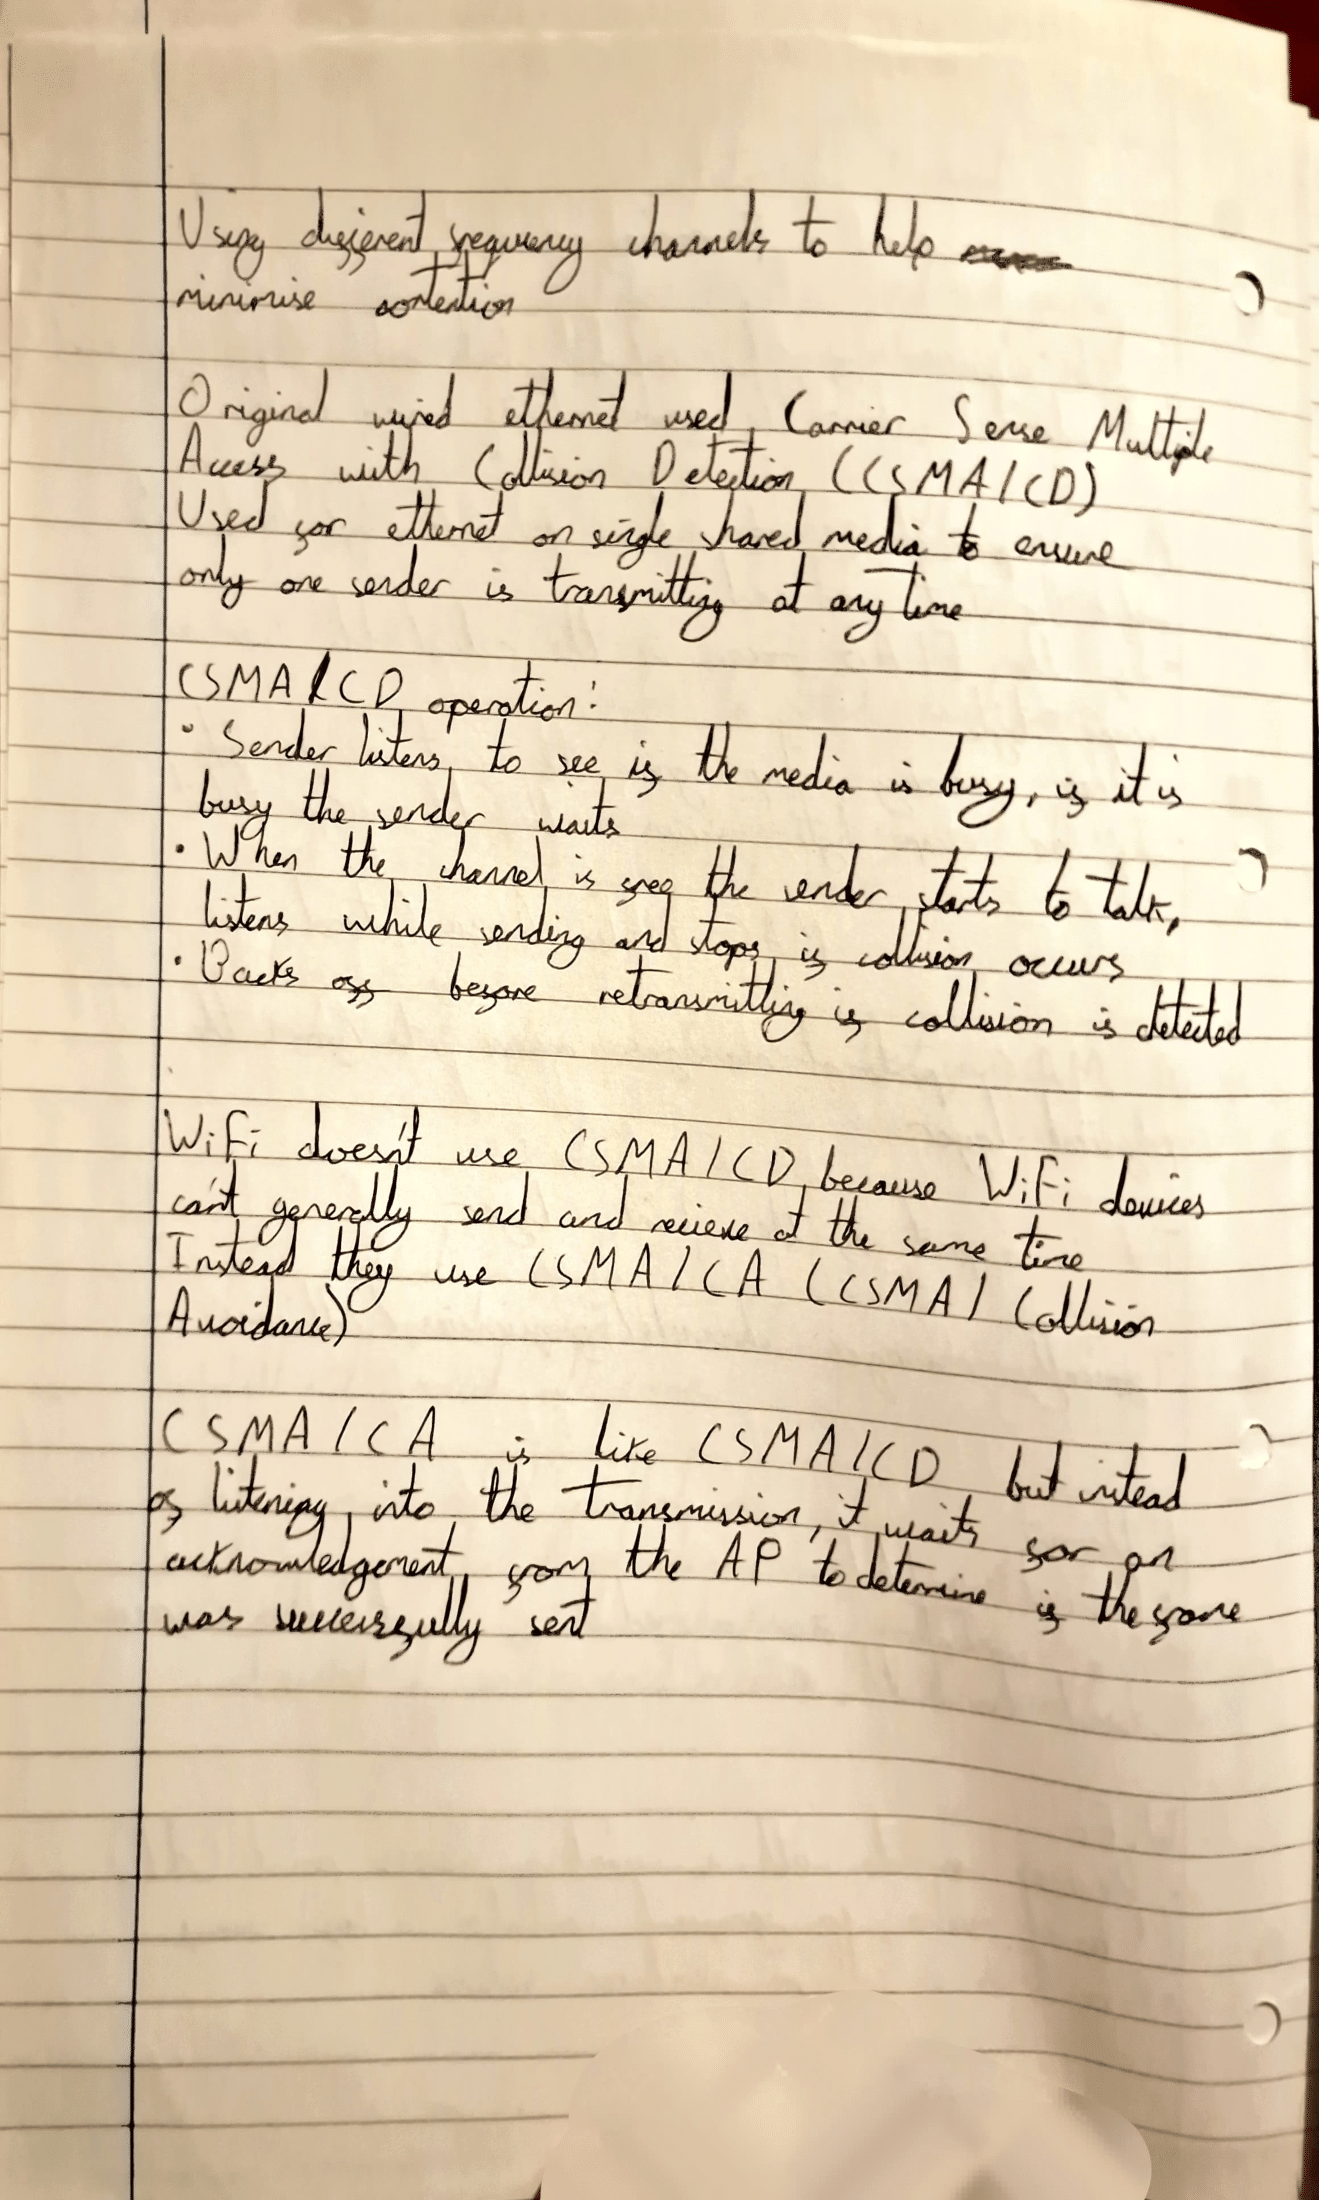 Using different frequency channels to help
minimise contention
Original wired ethernet used Carrier Sense Multiple
Access with Collision Detection (CSMA/CD)
Used for ethernet on single shared media to ensure
only one sender is transmitting at any time
CSMA/CD operation:
• Sender listens to see if the media is busy, if it is
busy the sender waits
• When the channel is free the sender starts to talk,
listens while sending and stops if collision occurs
• Backs off before retransmitting if collision is detected
WiFi doesn't use CSMA/CD because WiFi devices
can't generally send and recieve at the same time
Instead they use CSMA/CA (CSMA/Collision
Avoidance)
CSMA/CA is like CSMA/CD but instead
of listening into the transmission, it waits for an
acknowledgement from the AP to determine if the frame
was successfully sent